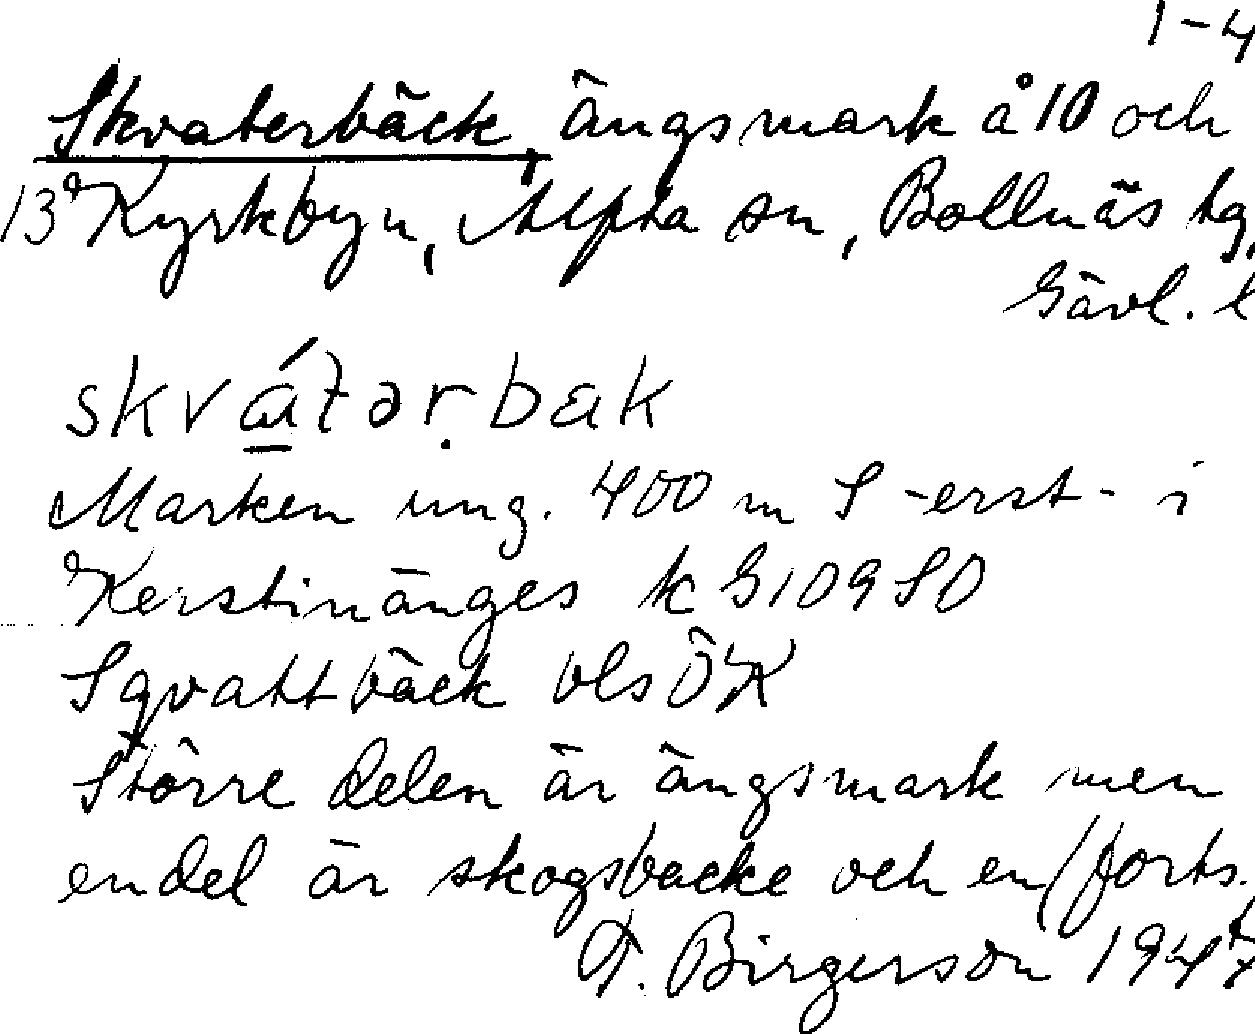 1-4
Skvaterbäck, ängsmark å 10 och
13 Kyrkbyn, Alfta sn, Bollnäs tg,
Gävl. l
skvátərbak
Marken ung. 400 m S -erst- i
Kerstinänges k G109SO
Sqvattbäck vls ÖK
Större delen är ängsmark men
endel är skogsbacke och en (forts.
T. Birgerson 1947